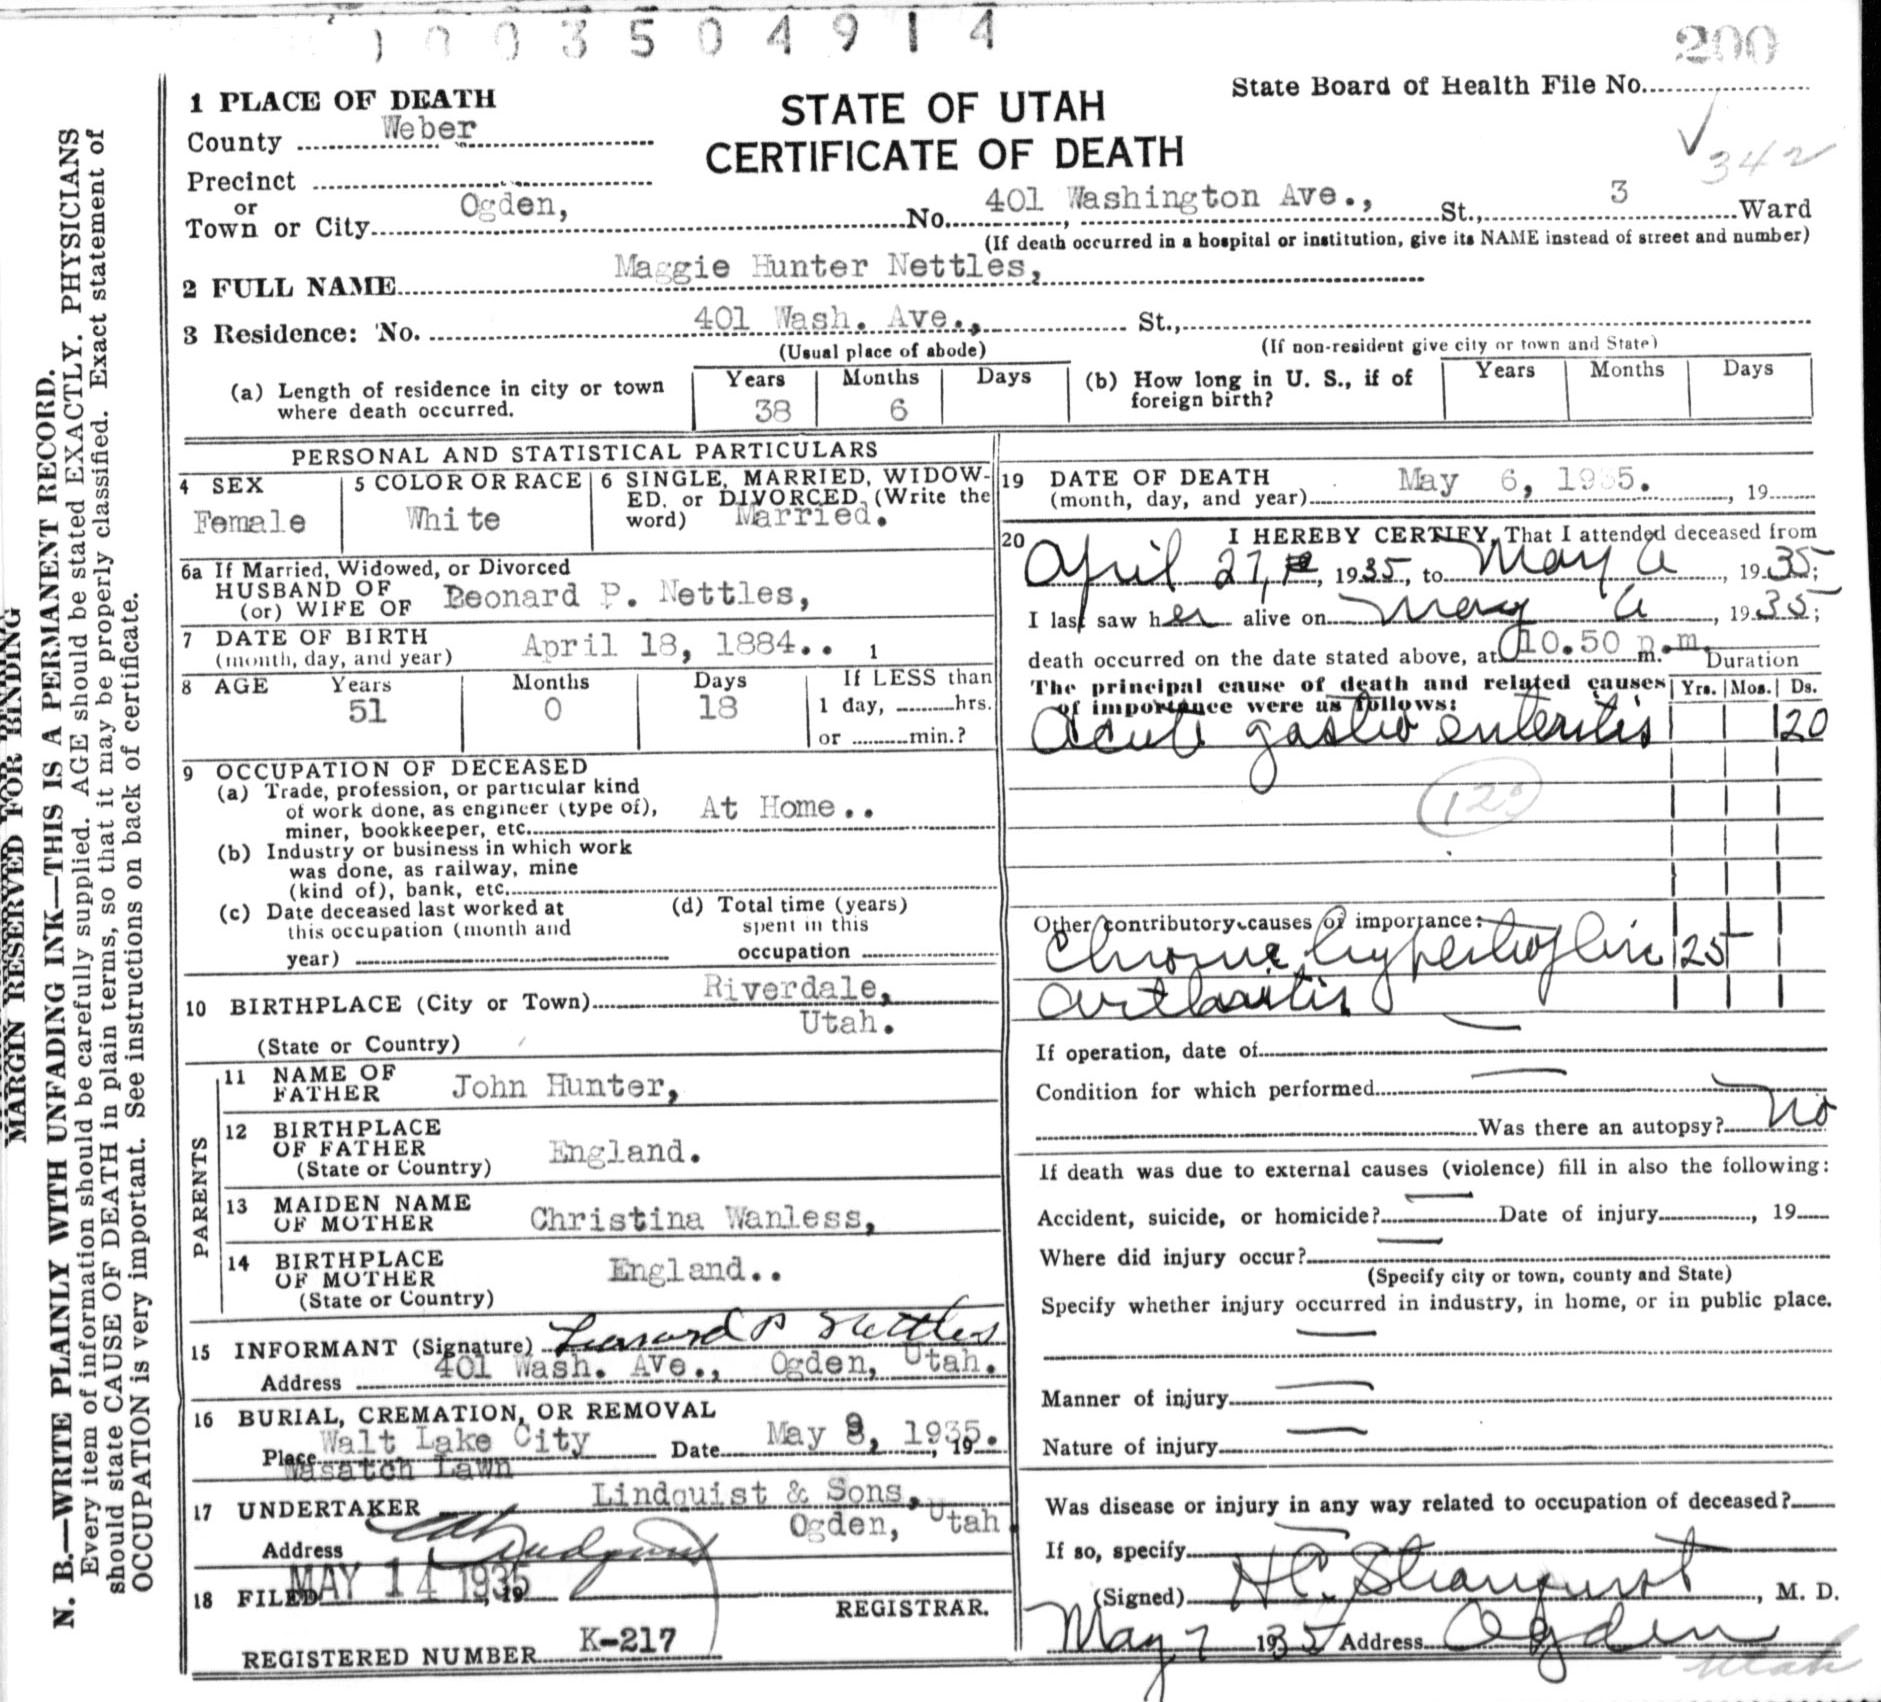 1003504914
200
State Board of Health File No.
342
1 PLACE OF DEATH
STATE OF UTAH
CERTIFICATE OF DEATH
County Weber
Precinct
or
Town or City Ogden, No. 401 Washington Ave., St., 3 Ward
(If death occurred in a hospital or institution, give its NAME instead of street and number)
2 FULL NAME Maggie Hunter Nettles,
3 Residence: No. 401 Wash. Ave., St.,
(Usual place of abode) (If non-resident give city or town and State)
(a) Length of residence in city or town where death occurred. Years 38 Months 6 Days
(b) How long in U. S., if of foreign birth? Years Months Days
PERSONAL AND STATISTICAL PARTICULARS
4 SEX Female
5 COLOR OR RACE White
6 SINGLE, MARRIED, WIDOW-
ED, or DIVORCED (Write the
word) Married.
6a If Married, Widowed, or Divorced
HUSBAND OF
(or) WIFE OF Leonard P. Nettles,
7 DATE OF BIRTH
(month, day, and year) April 18, 1884.. 1
8 AGE Years 51 Months 0 Days 18 If LESS than
1 day, hrs.
or min.?
9 OCCUPATION OF DECEASED
(a) Trade, profession, or particular kind
of work done, as engineer (type of),
miner, bookkeeper, etc. At Home..
(b) Industry or business in which work
was done, as railway, mine
(kind of), bank, etc.
(c) Date deceased last worked at
this occupation (month and
year)
(d) Total time (years)
spent in this
occupation
10 BIRTHPLACE (City or Town) Riverdale,
Utah.
(State or Country)
PARENTS
11 NAME OF
FATHER John Hunter,
12 BIRTHPLACE
OF FATHER England.
(State or Country)
13 MAIDEN NAME
OF MOTHER Christina Wanless,
14 BIRTHPLACE
OF MOTHER England..
(State or Country)
15 INFORMANT (Signature) Leonard P Nettles
Address 401 Wash. Ave., Ogden, Utah.
16 BURIAL, CREMATION, OR REMOVAL
Place Walt Lake City Date May 8, 1935. 19
Wasatch Lawn
17 UNDERTAKER Lindquist & Sons,
Ogden, Utah.
Address
18 FILED MAY 14 1935, 19
REGISTRAR.
REGISTERED NUMBER K-217
19 DATE OF DEATH
(month, day, and year) May 6, 1935. , 19
20 I HEREBY CERTIFY, That I attended deceased from
April 27, 1935, to May 6, 1935;
I last saw her alive on May 6, 1935;
death occurred on the date stated above, at 10.50 p.m. m.
Duration
The principal cause of death and related causes
of importance were as follows: Yrs. Mos. Ds.
Acute gastro enteritis 20
120
Other contributory causes of importance:
Chronic hypertrophic 25
arthritis
If operation, date of
Condition for which performed
Was there an autopsy? No
If death was due to external causes (violence) fill in also the following:
Accident, suicide, or homicide? Date of injury , 19
Where did injury occur?
(Specify city or town, county and State)
Specify whether injury occurred in industry, in home, or in public place.
Manner of injury
Nature of injury
Was disease or injury in any way related to occupation of deceased?
If so, specify
(Signed) , M. D.
May 7 1935 Address Ogden
Utah
MARGIN RESERVED FOR BINDING
N. B.—WRITE PLAINLY WITH UNFADING INK—THIS IS A PERMANENT RECORD.
Every item of information should be carefully supplied. AGE should be stated EXACTLY. PHYSICIANS
should state CAUSE OF DEATH in plain terms, so that it may be properly classified. Exact statement of
OCCUPATION is very important. See instructions on back of certificate.